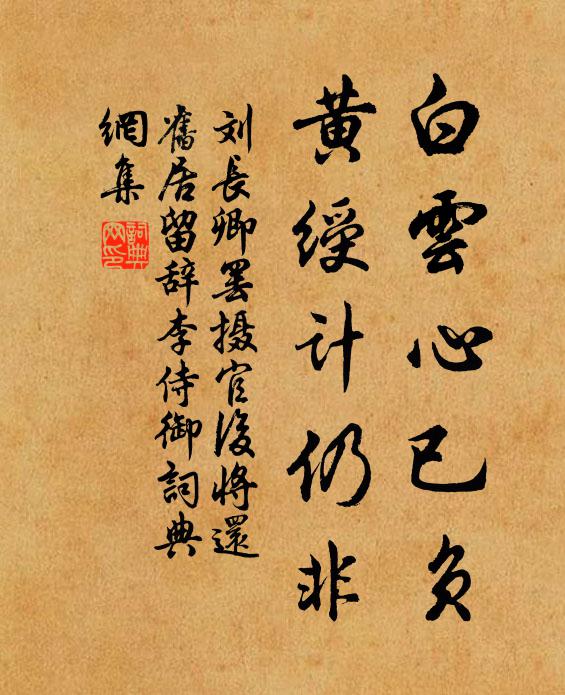 白雲心已負
黄綬计仍非
刘長卿罢摄官後将還
舊居留辞李侍御詞典
網集
詞典网印